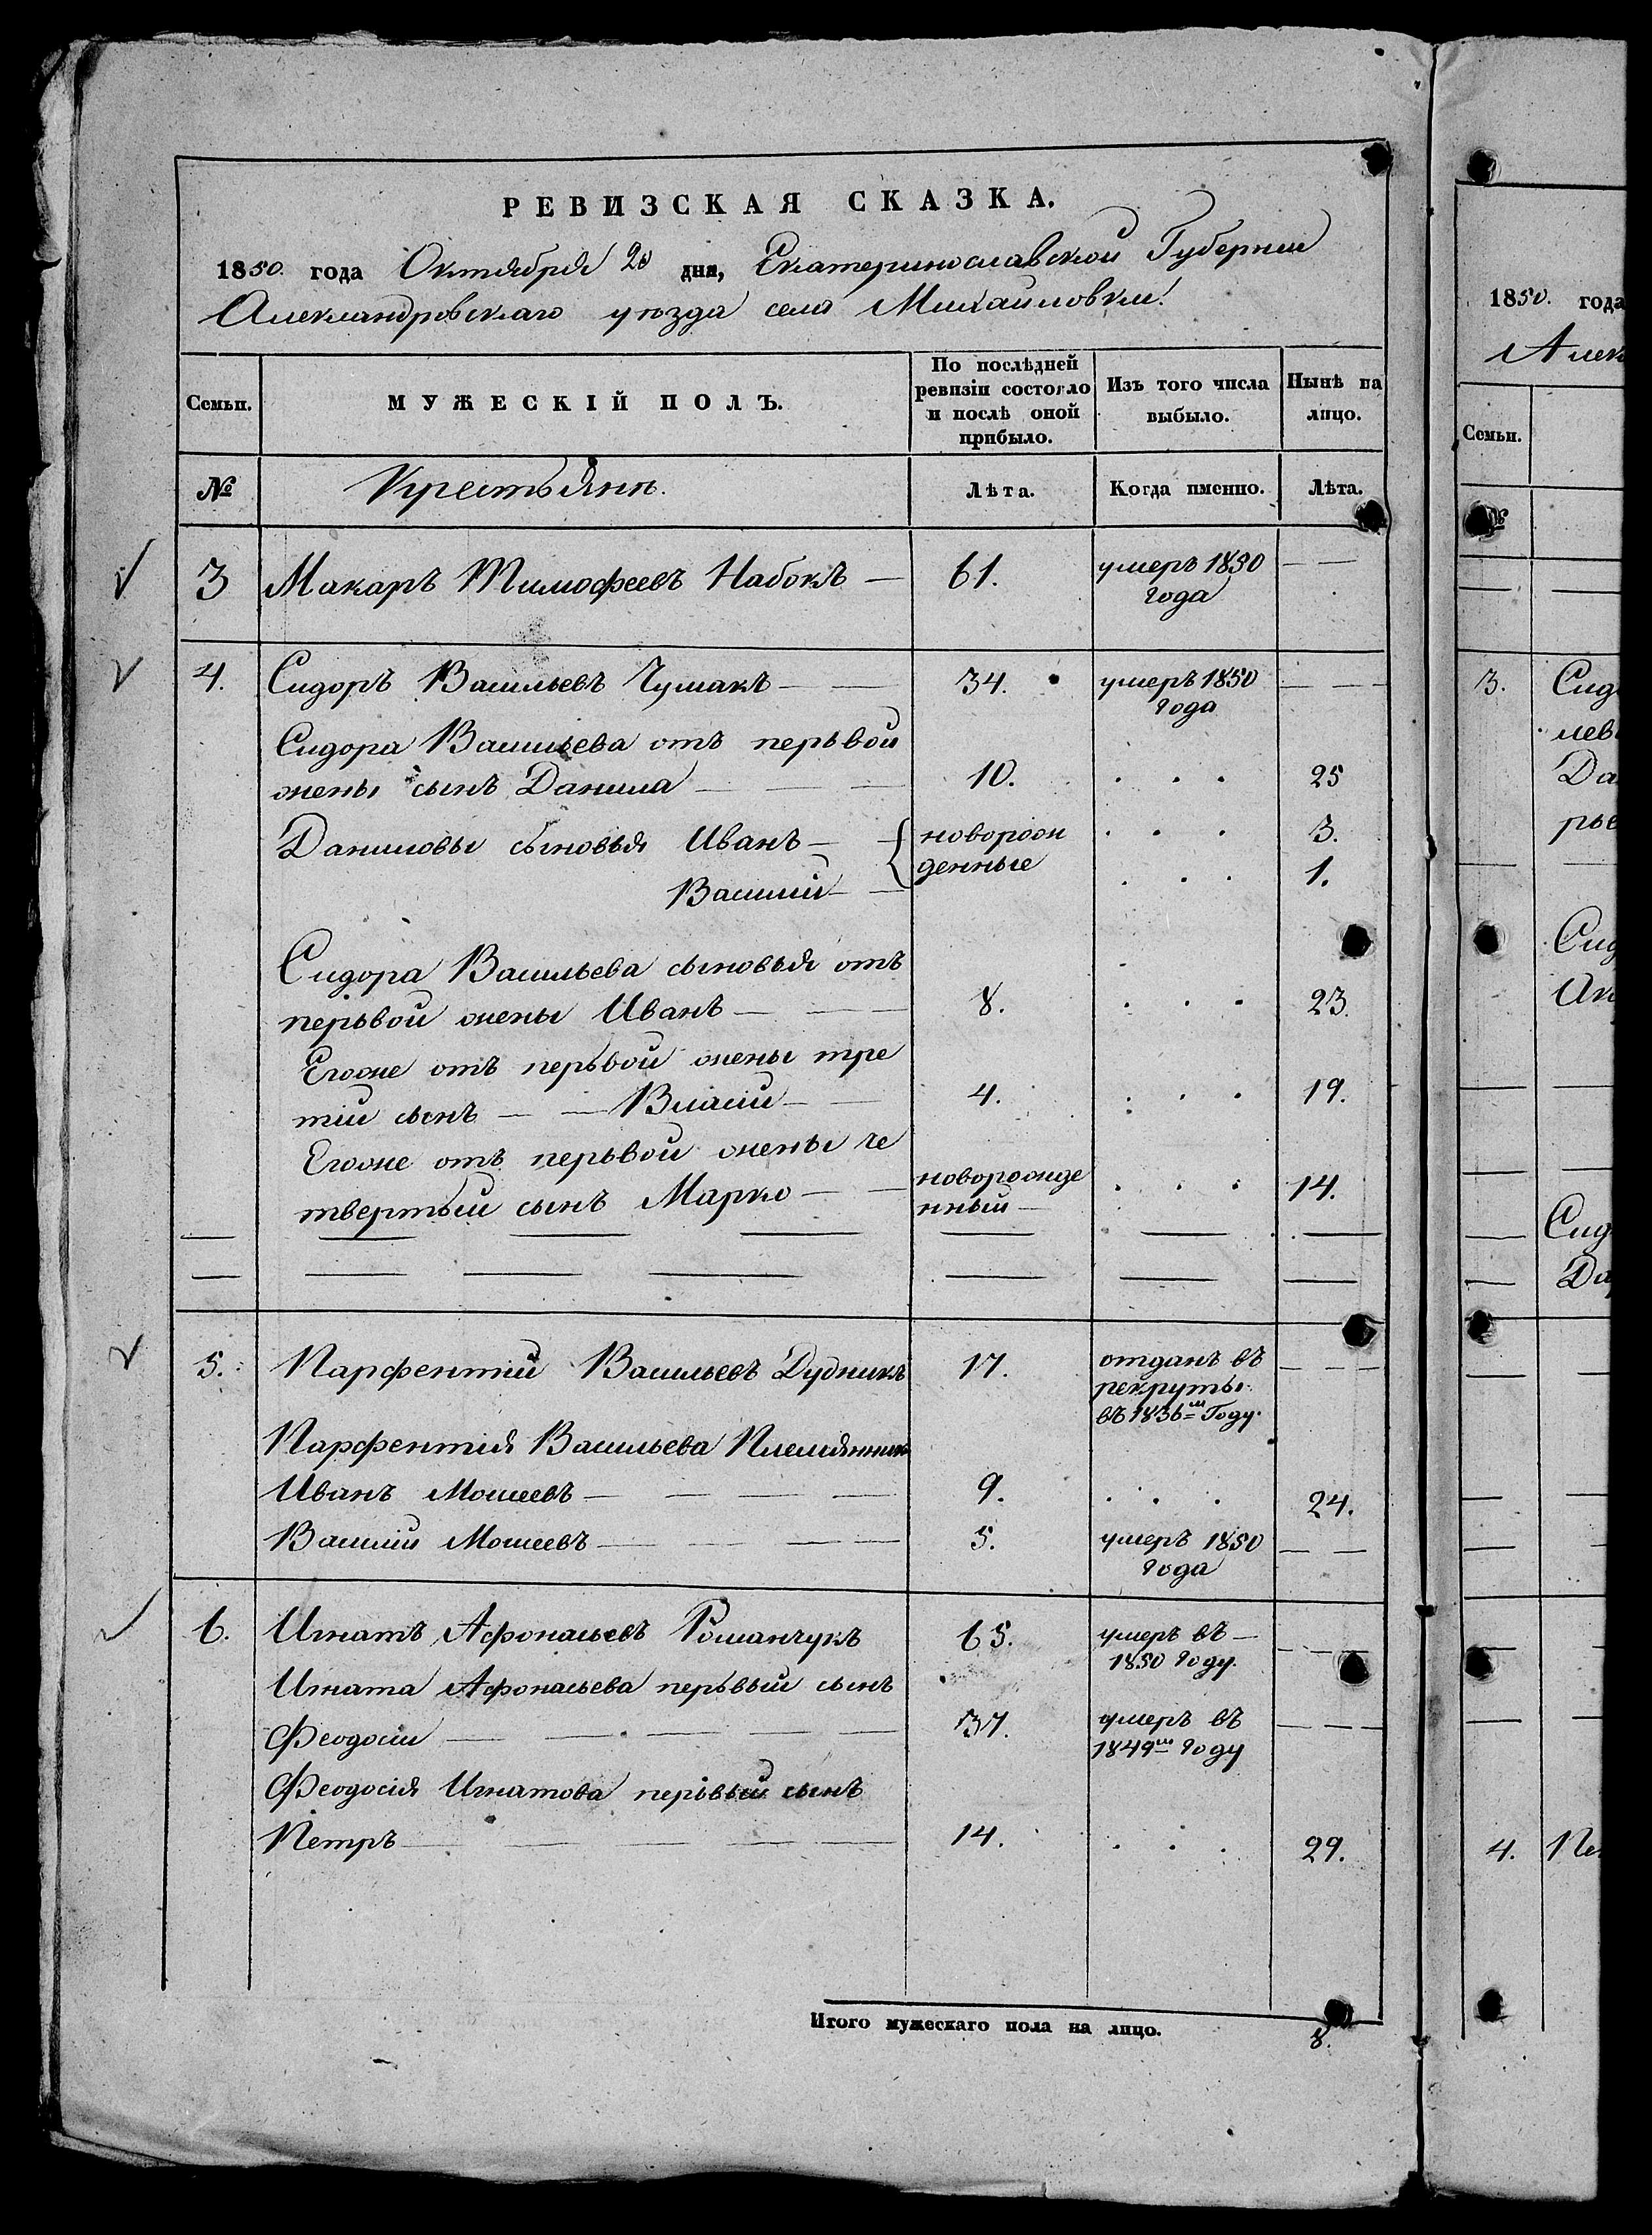 РЕВИЗСКАЯ СКАЗКА.
1850. года Октября 20 дня, Екатеринославской Губернии
Александровскаго уѣзда села Михайловки.
Семьи. МУЖЕСКІЙ ПОЛЪ. По послѣдней ревизіи состояло и послѣ оной прибыло. Изъ того числа выбыло. Нынѣ на лицо.
№ Крестьяне. Лѣта. Когда именно. Лѣта.
3 Макаръ Тимофеевъ Набокъ — 61. умеръ 1850 — —
года
4. Сидоръ Васильевъ Чумакъ — — 34. умеръ 1850 — —
года
Сидора Васильева отъ перьвой
жены сынъ Данила — — — 10. . . . 25
Даниловы сыновья Иванъ — — { новорож . . . 3.
Василій — — денные . . . 1.
Сидора Васильева сыновья отъ
перьвой жены Иванъ — — — 8. . . . 23.
Егоже отъ перьвой жены тре
тій сынъ — — Власій — — 4. . . . 19.
Егоже отъ перьвой жены че
твертый сынъ Марко — — новорожде . . . 14.
нный —
5. Парфентий Васильевъ Дудникъ 17. отданъ въ — — —
рекруты
въ 1836м Году.
Парфентія Васильева Племянники
Иванъ Мосеевъ — — — — 9. . . . 24.
Василий Мосеевъ — — — — 5. умеръ 1850 — —
года
6. Игнатъ Афонасьевъ Романчукъ 65. умеръ въ — — —
1850 году.
Игната Афонасьева перьвый сынъ
Феодосій — — — — — 37. умеръ въ — — —
1849м году
Феодосія Игнатова перьвый сынъ
Петръ — — — — — 14. . . . 29.
Итого мужескаго пола на лицо. 8.
1850. года
Алек
Семьи.
№
3. Сид
лев
Да
рье
Сид
Сид
Да
4. Пе